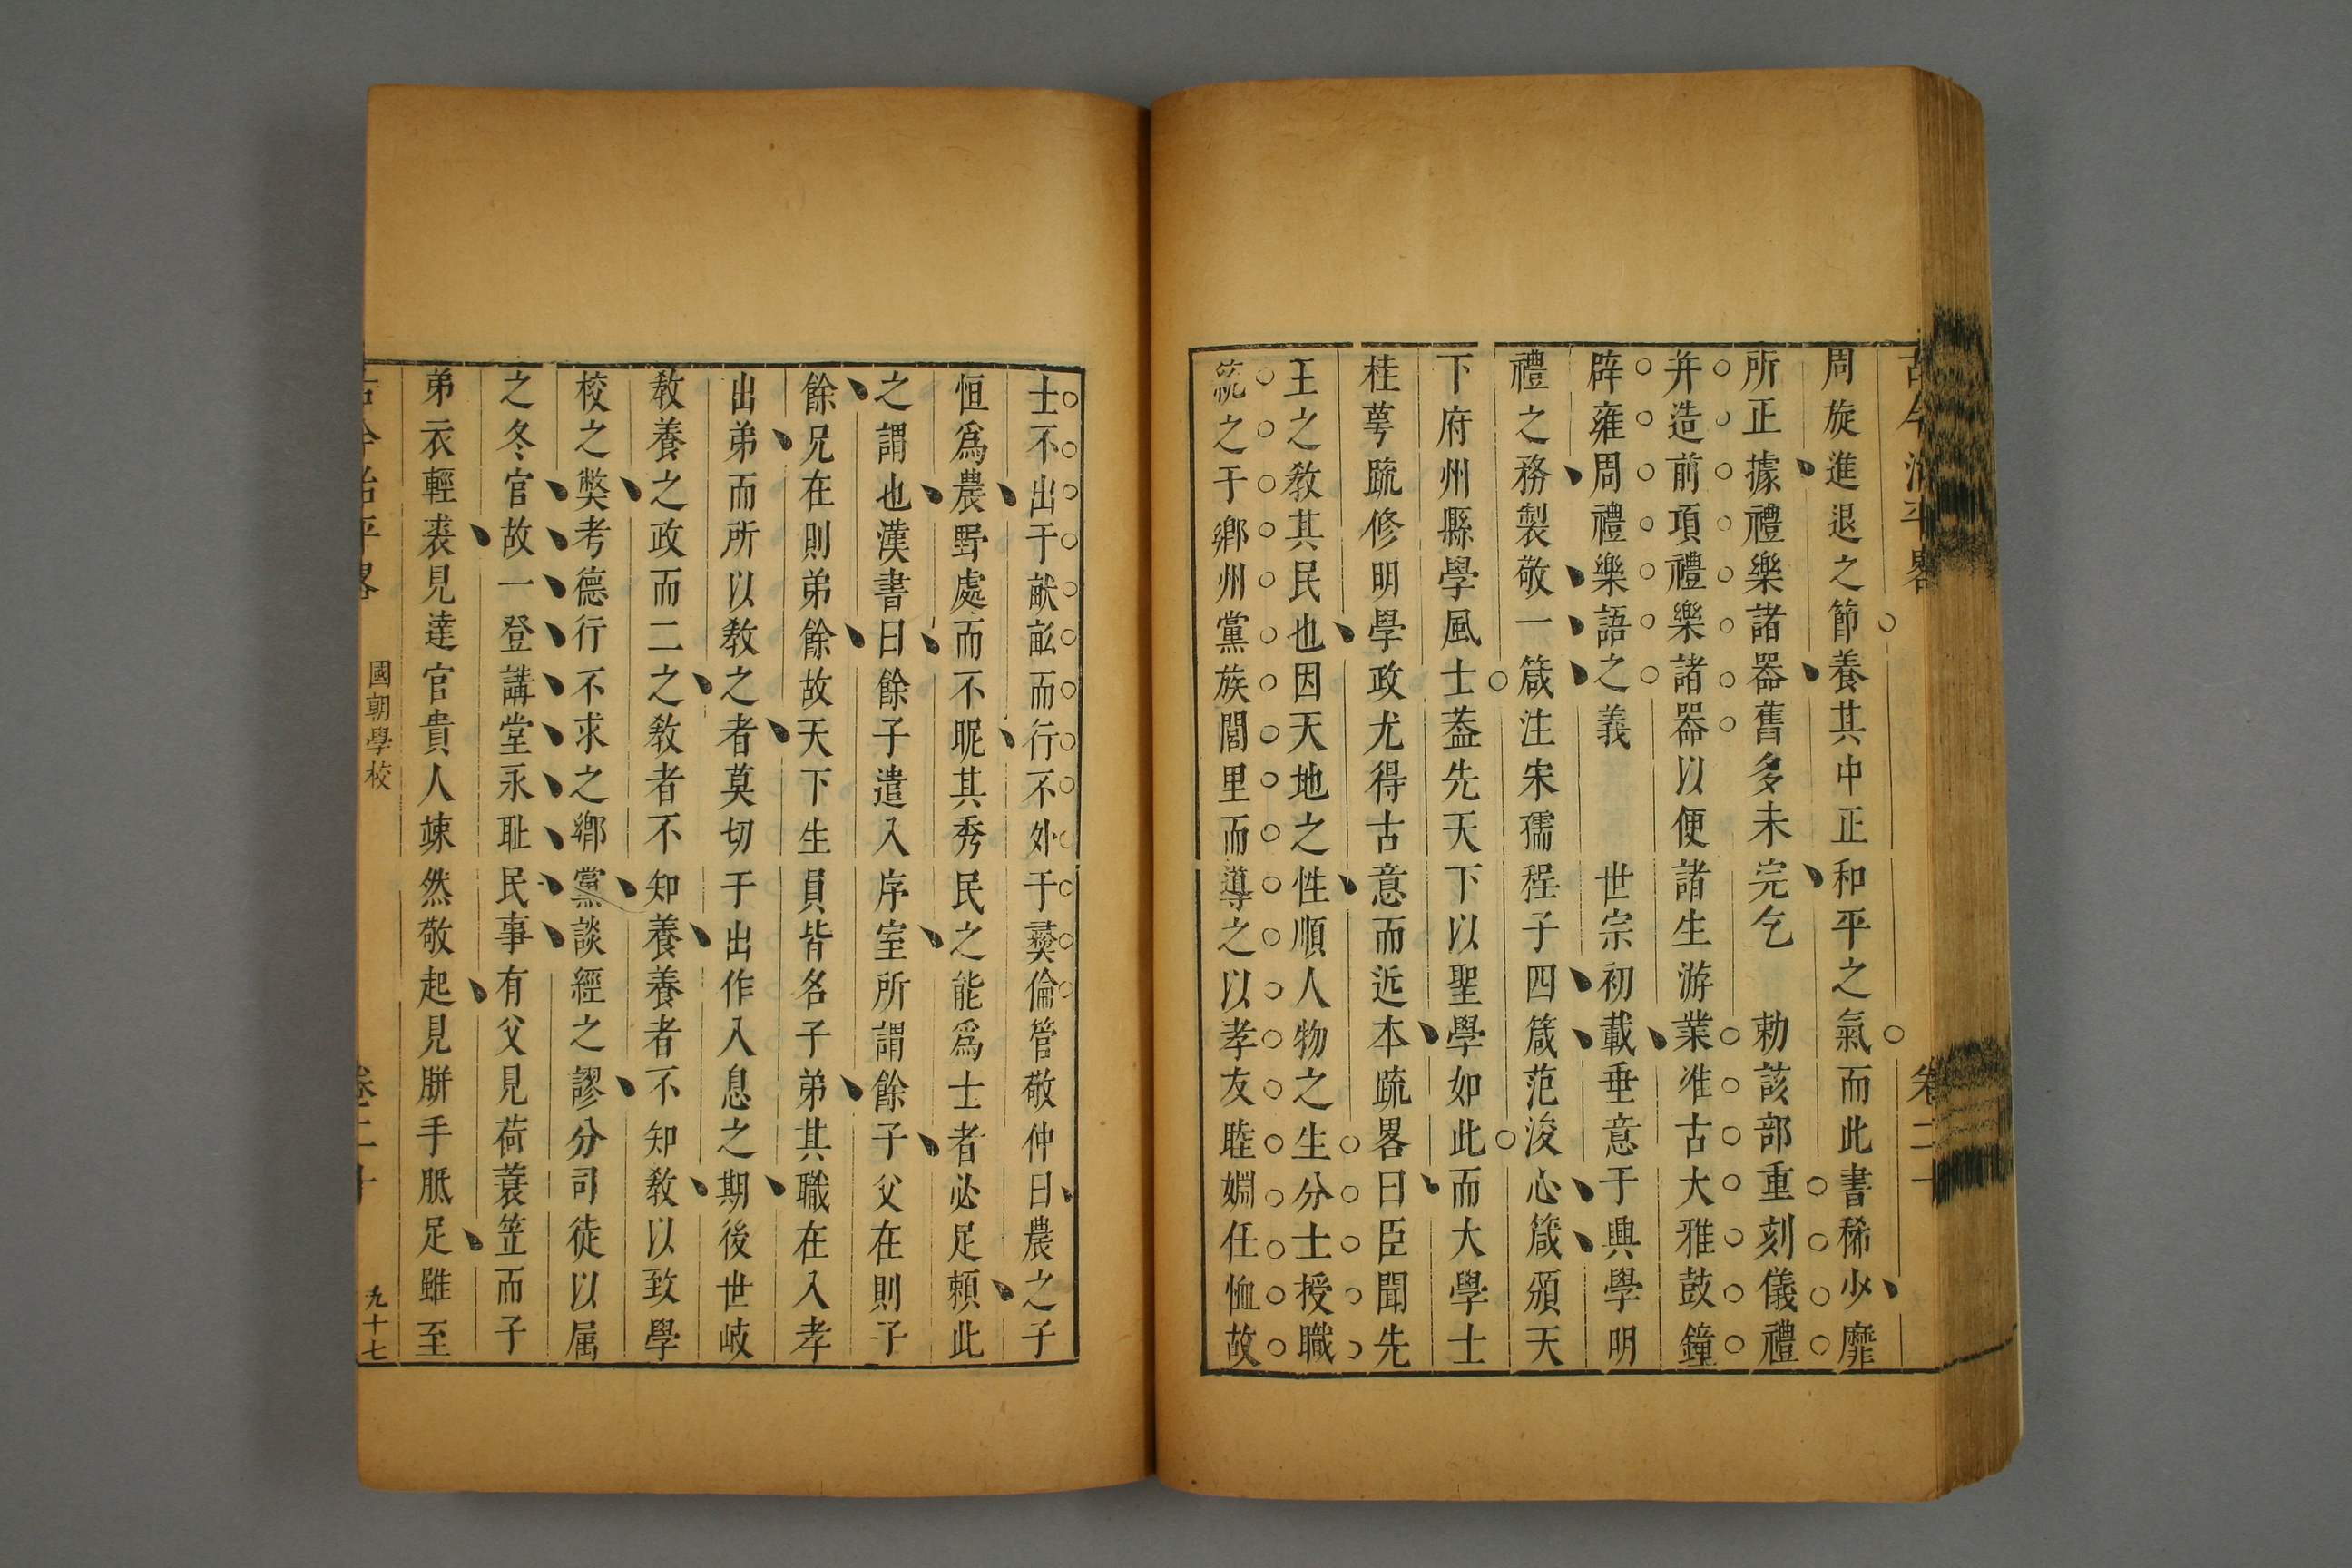 古今治平畧
卷二十
周旋進退之節養其中正和平之氣而此書稀少靡
所正據禮樂諸器舊多未完乞 勅該部重刻儀禮
并造前項禮樂諸器以便諸生游業准古大雅鼓鐘
辟雍周禮樂語之義 世宗初載垂意于興學明
禮之務製敬一箴注宋儒程子四箴范浚心箴頒天
下府州縣學風士葢先天下以聖學如此而大學士
桂萼疏修明學政尤得古意而近本疏畧曰臣聞先
王之教其民也因天地之性順人物之生分士授職
統之于鄉州黨族閭里而導之以孝友睦婣任恤故
士不出于畎畝而行不外于彜倫管敬仲曰農之子
恒爲農野處而不昵其秀民之能爲士者必足頼此
之謂也漢書曰餘子遣入序室所謂餘子父在則子
餘兄在則弟餘故天下生員皆名子弟其職在入孝
出弟而所以教之者莫切于出作入息之期後世岐
教養之政而二之教者不知養養者不知教以致學
校之獘考德行不求之鄉黨談經之謬分司徒以属
之冬官故一登講堂永耻民事有父見荷蓑笠而子
弟衣輕裘見達官貴人竦然敬起見胼手胝足雖至
古今治平畧
國朝學校
卷二十
九十七